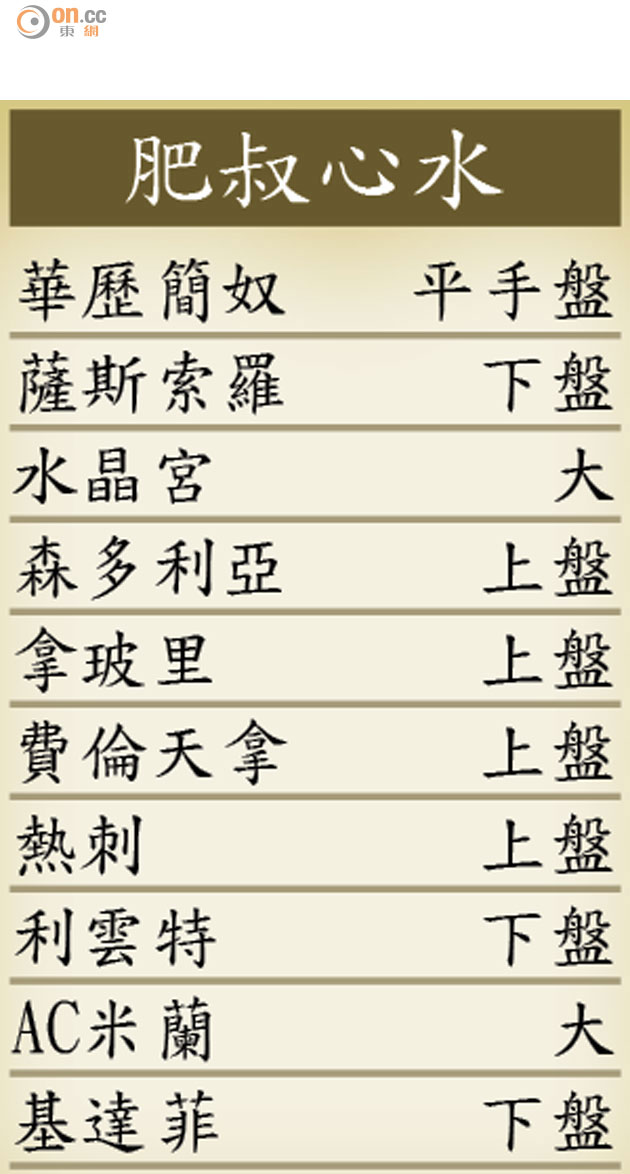 on.cc
東網
肥叔心水
華歷簡奴 平手盤
薩斯索羅 下盤
水晶宮 大
森多利亞 上盤
拿玻里 上盤
費倫天拿 上盤
熱刺 上盤
利雲特 下盤
AC米蘭 大
基達菲 下盤